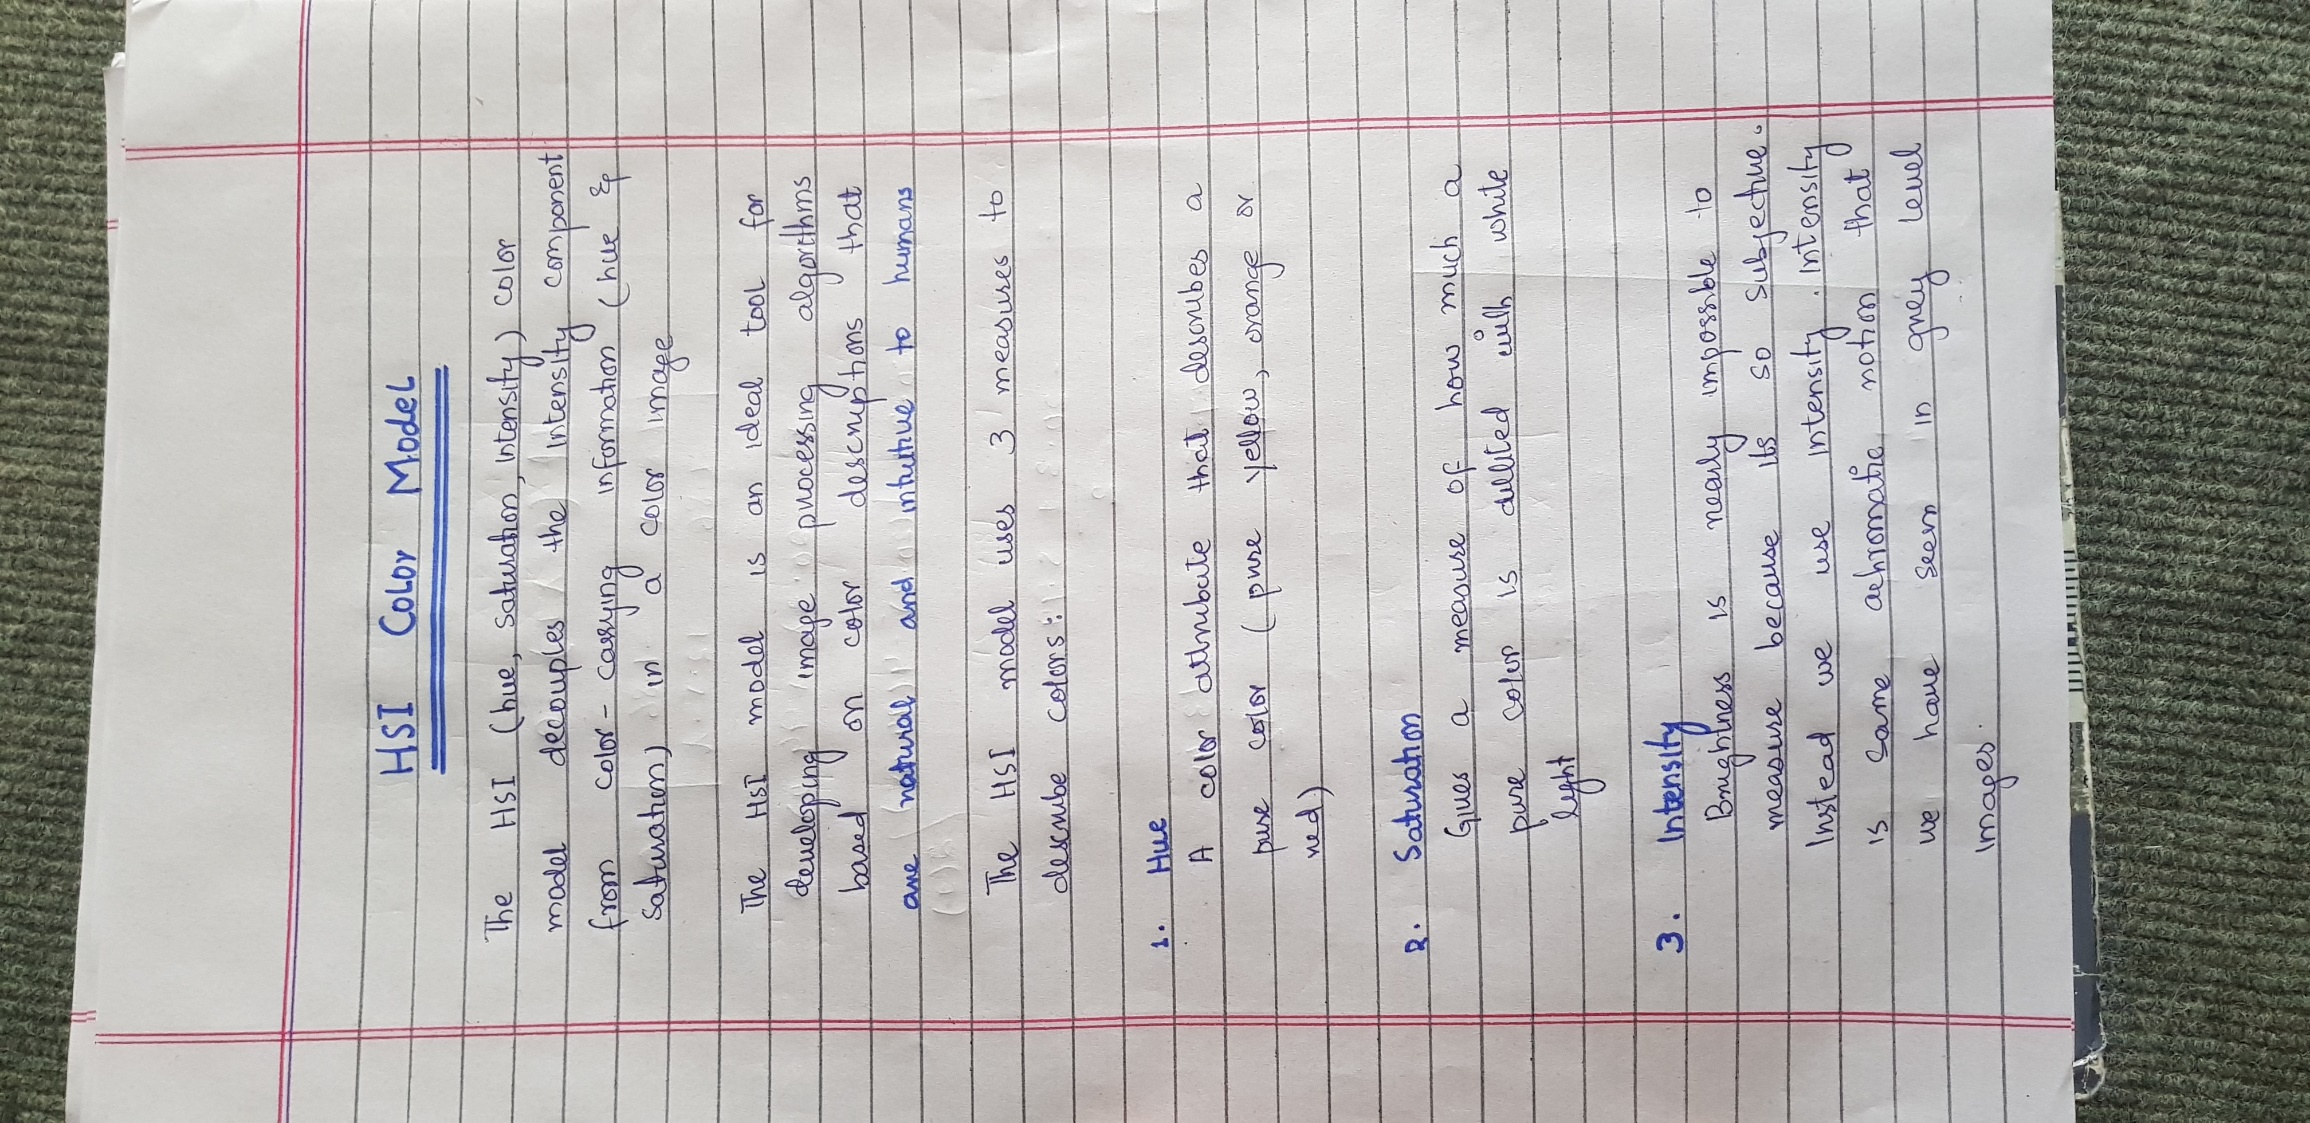 HSI Color Model
The HSI (hue, saturation, intensity) color
model decouples the intensity component
from color-carrying information (hue &
saturation) in a color image
The HSI model is an ideal tool for
developing image processing algorithms
based on color descriptions that
are natural and intuitive to humans
The HSI model uses 3 measures to
describe colors:
1. Hue
A color attribute that describes a
pure color (pure yellow, orange or
red)
2. Saturation
Gives a measure of how much a
pure color is diluted with white
light
3. Intensity
Brightness is nearly impossible to
measure because its so subjective.
Instead we use intensity. Intensity
is same achromatic notion that
we have seen in grey level
images.